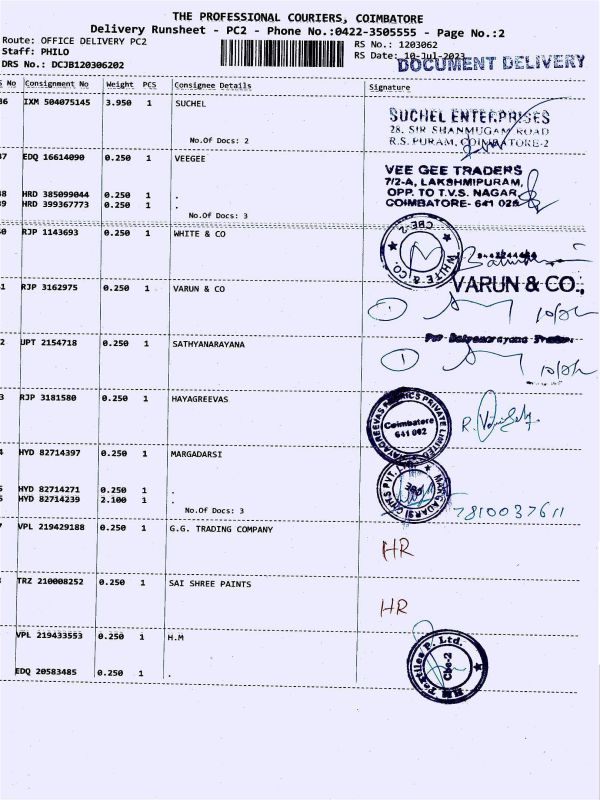 THE PROFESSIONAL COURIERS, COIMBATORE
Delivery Runsheet - PC2 - Phone No.:0422-3505555 - Page No.:2
Route: OFFICE DELIVERY PC2
RS No.: 1203062
Staff: PHILO
RS Date: 10-Jul-2023
DRS No.: DCJB120306202
DOCUMENT DELIVERY
No Consignment No Weight PCS Consignee Details Signature
36 IXM 504075145 3.950 1 SUCHEL
No.Of Docs: 2
SUCHEL ENTERPRISES
28, SIR SHANMUGAM ROAD
R.S. PURAM, COIMBATORE-2
37 EDQ 16614090 0.250 1 VEEGEE
38 HRD 385099044 0.250 1 .
39 HRD 399367773 0.250 1 .
No.Of Docs: 3
VEE GEE TRADERS
7/2-A, LAKSHMIPURAM,
OPP. TO T.V.S. NAGAR,
COIMBATORE- 641 025
40 RJP 1143693 0.250 1 WHITE & CO
WHITE & CO.
CBE-2
41 RJP 3162975 0.250 1 VARUN & CO
VARUN & CO.,
1
42 UPT 2154718 0.250 1 SATHYANARAYANA
For Satyanarayana
1
43 RJP 3181580 0.250 1 HAYAGREEVAS
HAYAGREEVAS FABRICS PRIVATE LIMITED
Coimbatore
641 002
44 HYD 82714397 0.250 1 MARGADARSI
HYD 82714271 0.250 1 .
HYD 82714239 2.100 1 .
No.Of Docs: 3
MARGADARSI CHITS PVT. LTD.
7810037611
VPL 219429188 0.250 1 G.G. TRADING COMPANY
HR
TRZ 210008252 0.250 1 SAI SHREE PAINTS
HR
VPL 219433553 0.250 1 H.M
EDQ 20583485 0.250 1 .
HM Textiles P. Ltd.
Cbe-2